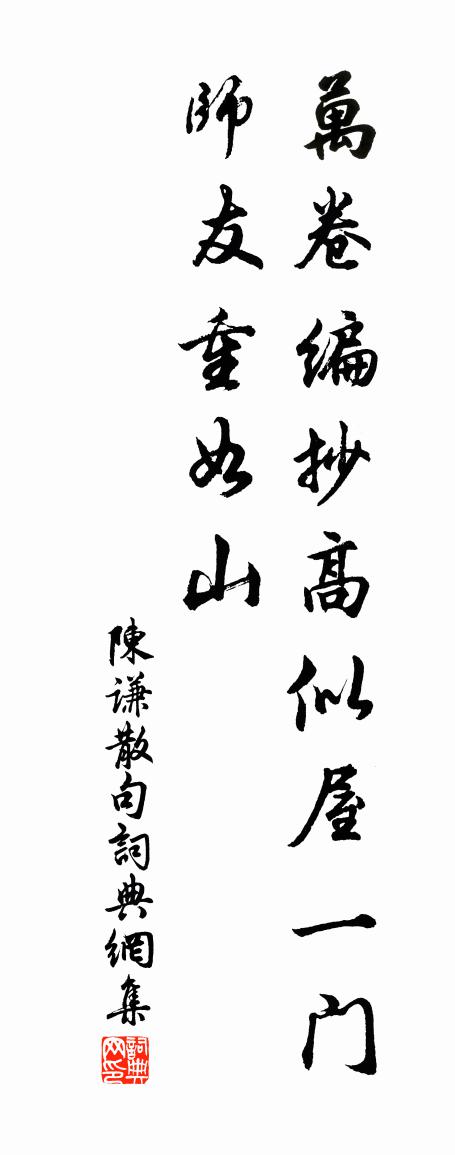 萬卷編抄高似屋一门
師友重如山
陳谦散句詞典網集
詞典网印